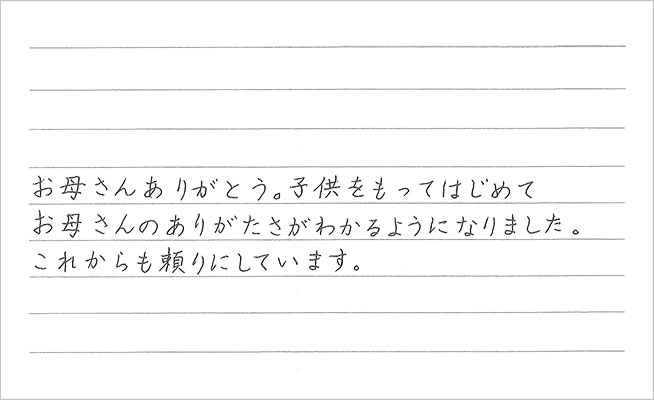 お母さんありがとう。子供をもってはじめて
お母さんのありがたさがわかるようになりました。
これからも頼りにしています。